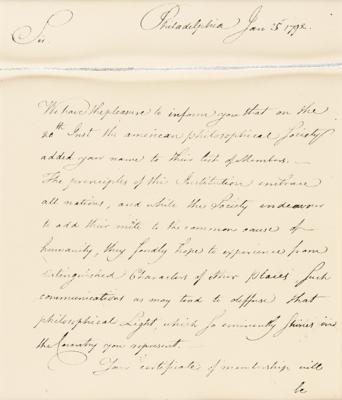 Philadelphia Jan 25th 1792
Sir.
We have the pleasure to inform you that on the
20th Inst the american philosophical Society
added your name to their list of Members. —
The principles of this Institution embrace
all nations, and while the Society endeavour
to add their mite to the common cause of
humanity, they fondly hope to experience from
distinguished Characters of other places Such
communications as may tend to diffuse that
philosophical Light, which so eminently Shines in
the Country you represent. —
Your certificate of membership will
be